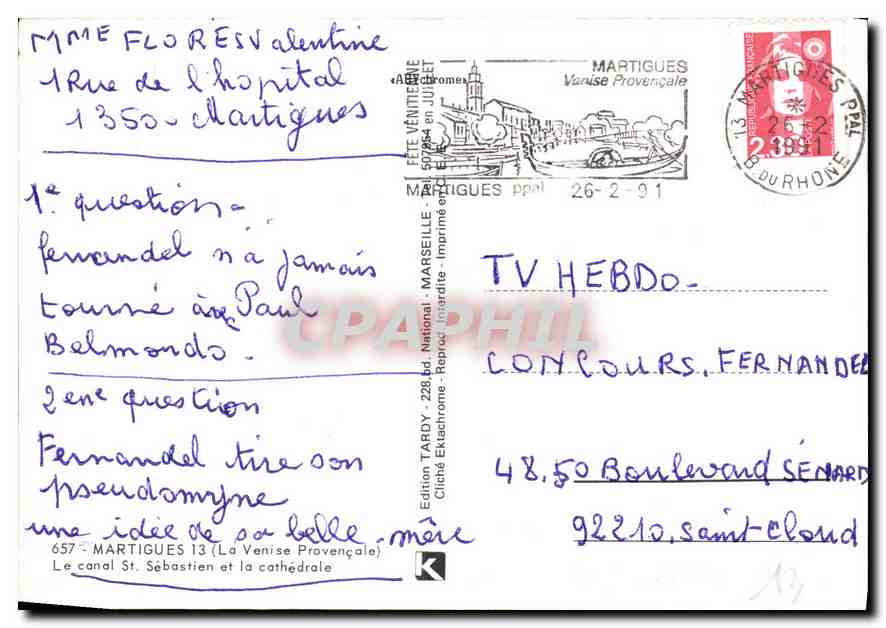 MME FLORES Valentine
1 Rue de l'hopital
1350 - Martigues
1e question =
fernandel n'a jamais
tourné avec Paul
Belmondo.
2ene question
Fernandel tire son
pseudomyne
une idée de sa belle-mère
657 - MARTIGUES 13 (La Venise Provençale)
Le canal St. Sébastien et la cathédrale
Edition TARDY - 228, bd. National - MARSEILLE - Tel. 50
Cliché Ektachrome - Reprod. Interdite - Imprimé en C.E.E.
K
FÊTE VÉNITIENNE
en JUILLET
MARTIGUES
Venise Provençale
MARTIGUES ppal 26-2-91
13 MARTIGUES PPAL
26-2
1991
B. DU RHONE
RÉPUBLIQUE FRANÇAISE
TV HEBDO -
CONCOURS. FERNANDEL
48.50 Boulevard SÉNARD
92210. Saint-Cloud
13
CPAPHIL